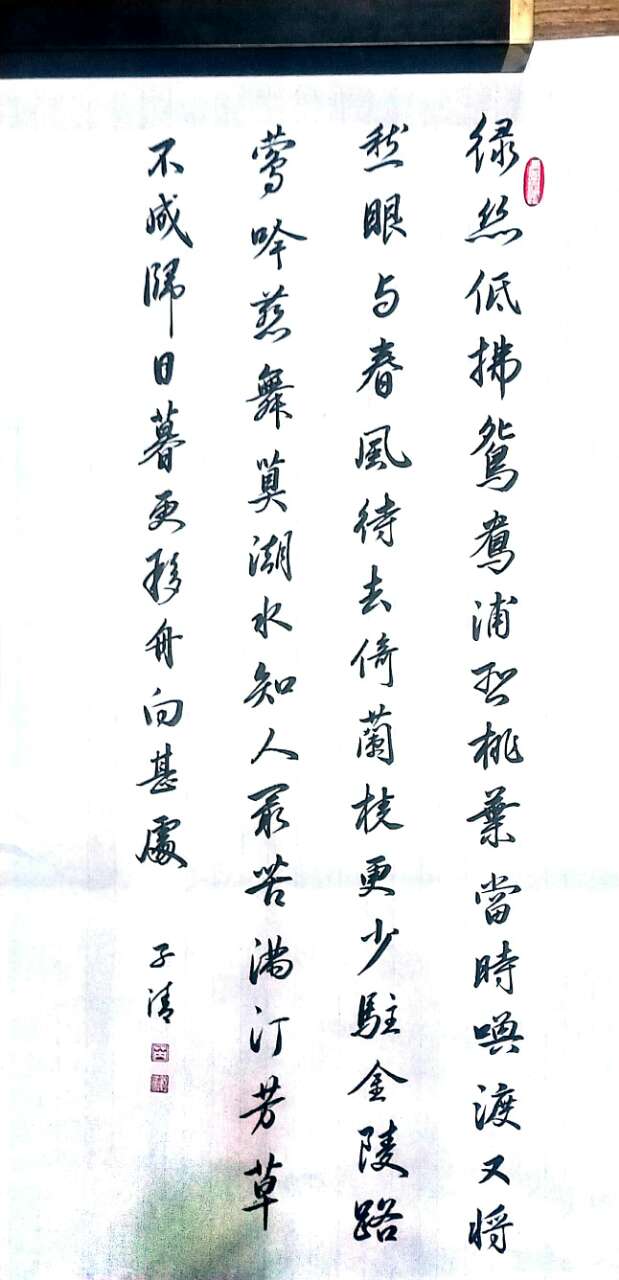 绿丝低拂鴛鴦浦想桃葉當時喚渡又將
愁眼与春風待去倚蘭橈更少駐金陵路
鶯吟燕舞算潮水知人最苦滿汀芳草
不成歸日暮更移舟向甚處
子清